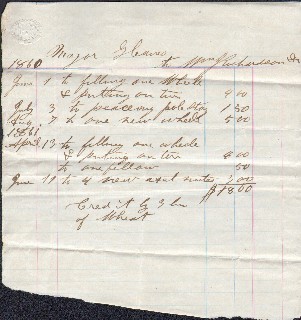 Major Graves
1860 to Wm Richardson Dr
June 1 to filling one Wheele
& putting on tire 4 00
July 3 to peaceing pole 1 50
Aug 7 to one new wheel 5 00
1861
April 13 to filling one wheele
& puting on tire
to one fellow 50
June 11 to 4 new axel 3 00
$18.00
Credit by 3 bu
of Wheat